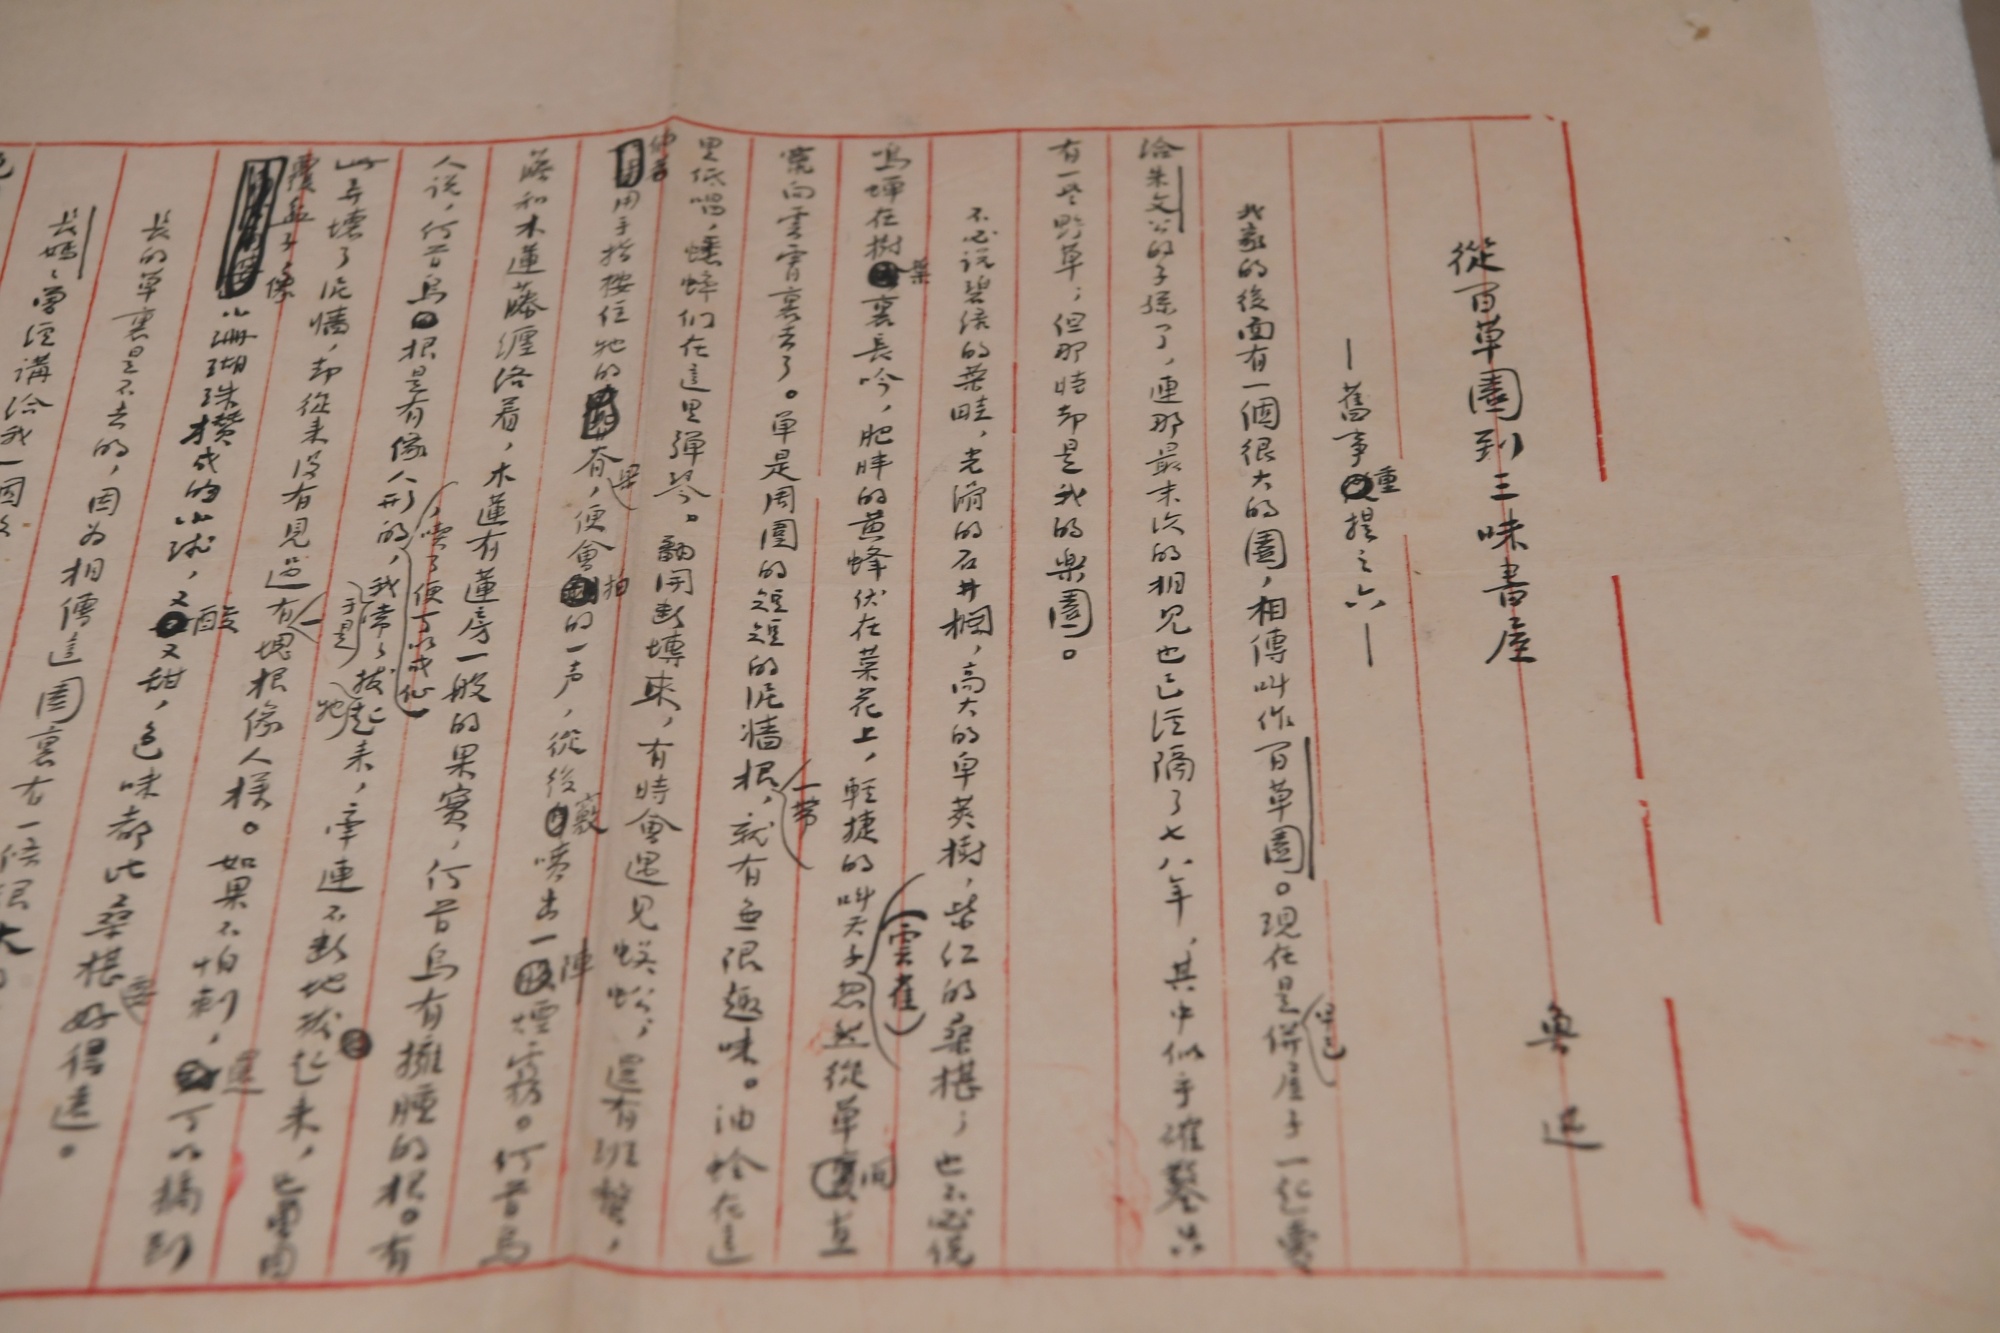 從百草園到三味書屋 魯迅
—舊事重提之六—
我家的後面有一個很大的園，相傳叫作百草園。現在是早已併屋子一起賣
給朱文公的子孫了，連那最末次的相見也已經隔了七八年，其中似乎確鑿只
有一些野草；但那時却是我的樂園。
不必説碧綠的菜畦，光滑的石井欄，高大的皁莢樹，紫紅的桑椹；也不必説
鳴蟬在樹葉裏長吟，肥胖的黃蜂伏在菜花上，輕捷的叫天子（雲雀）忽然從草間直
竄向雲霄裏去了。單是周圍的短短的泥牆根一帶，就有無限趣味。油蛉在這
里低唱，蟋蟀們在這里彈琴。翻開斷塼來，有時會遇見蜈蚣；還有斑蝥，
倘若用手指按住牠的脊梁，便會拍的一声，從後竅噴出一陣煙霧。何首烏
藤和木蓮藤纏絡着，木蓮有蓮房一般的果實，何首烏有擁腫的根。有
人説，何首烏根是有像人形的，喫了便可以成仙，我於是常常拔牠起來，牽連不斷地拔起來，也曾因
此弄壞了泥牆，却從來沒有見過有一塊根像人樣。如果不怕刺，還可以摘到
覆盆子，像小珊瑚珠攢成的小球，又酸又甜，色味都比桑椹要好得遠。
長的草裏是不去的，因为相傳這園裏有一條很大
長媽媽曾經講給我一個